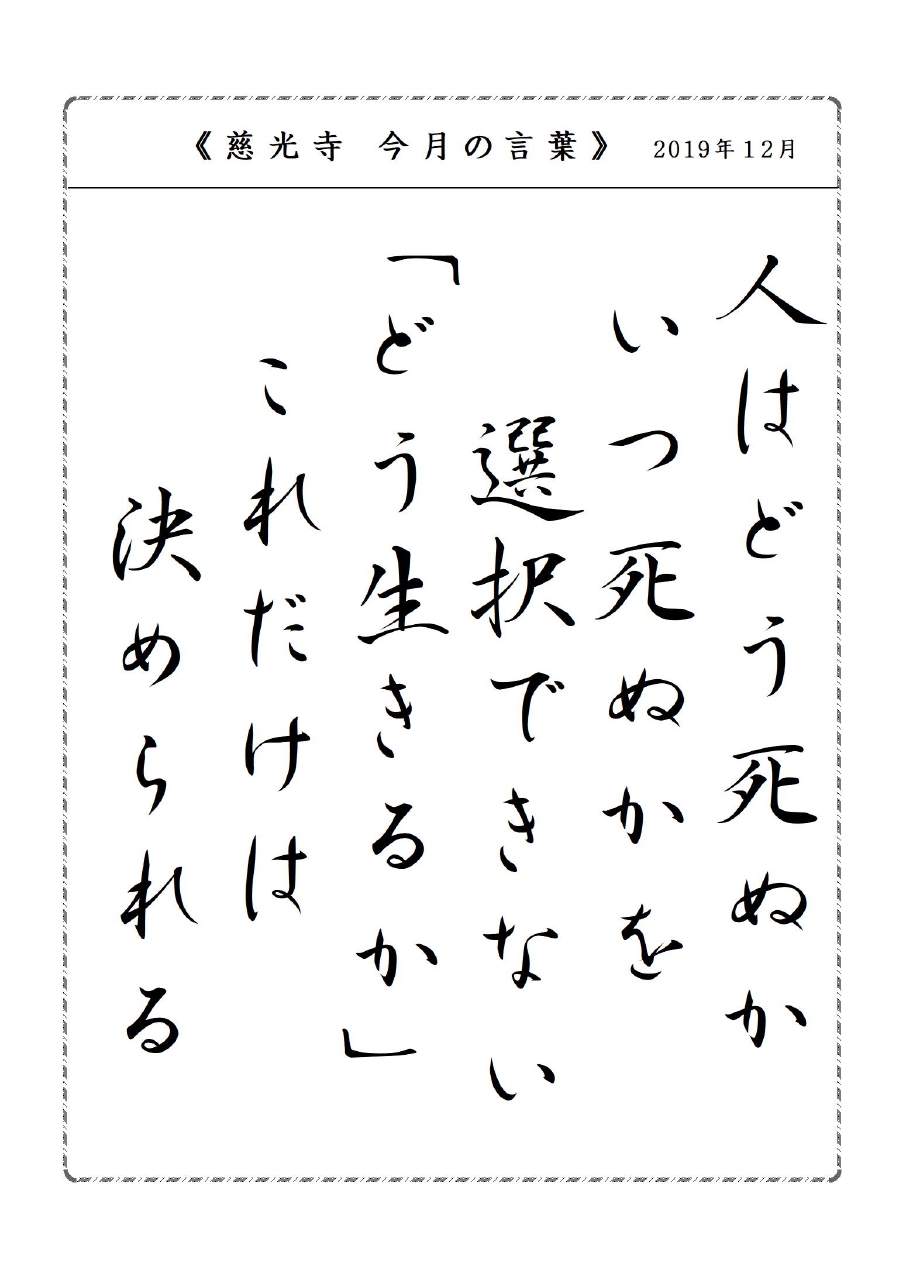 《慈光寺 今月の言葉》 2019年12月
人はどう死ぬか
いつ死ぬかを
選択できない
「どう生きるか」
これだけは
決められる